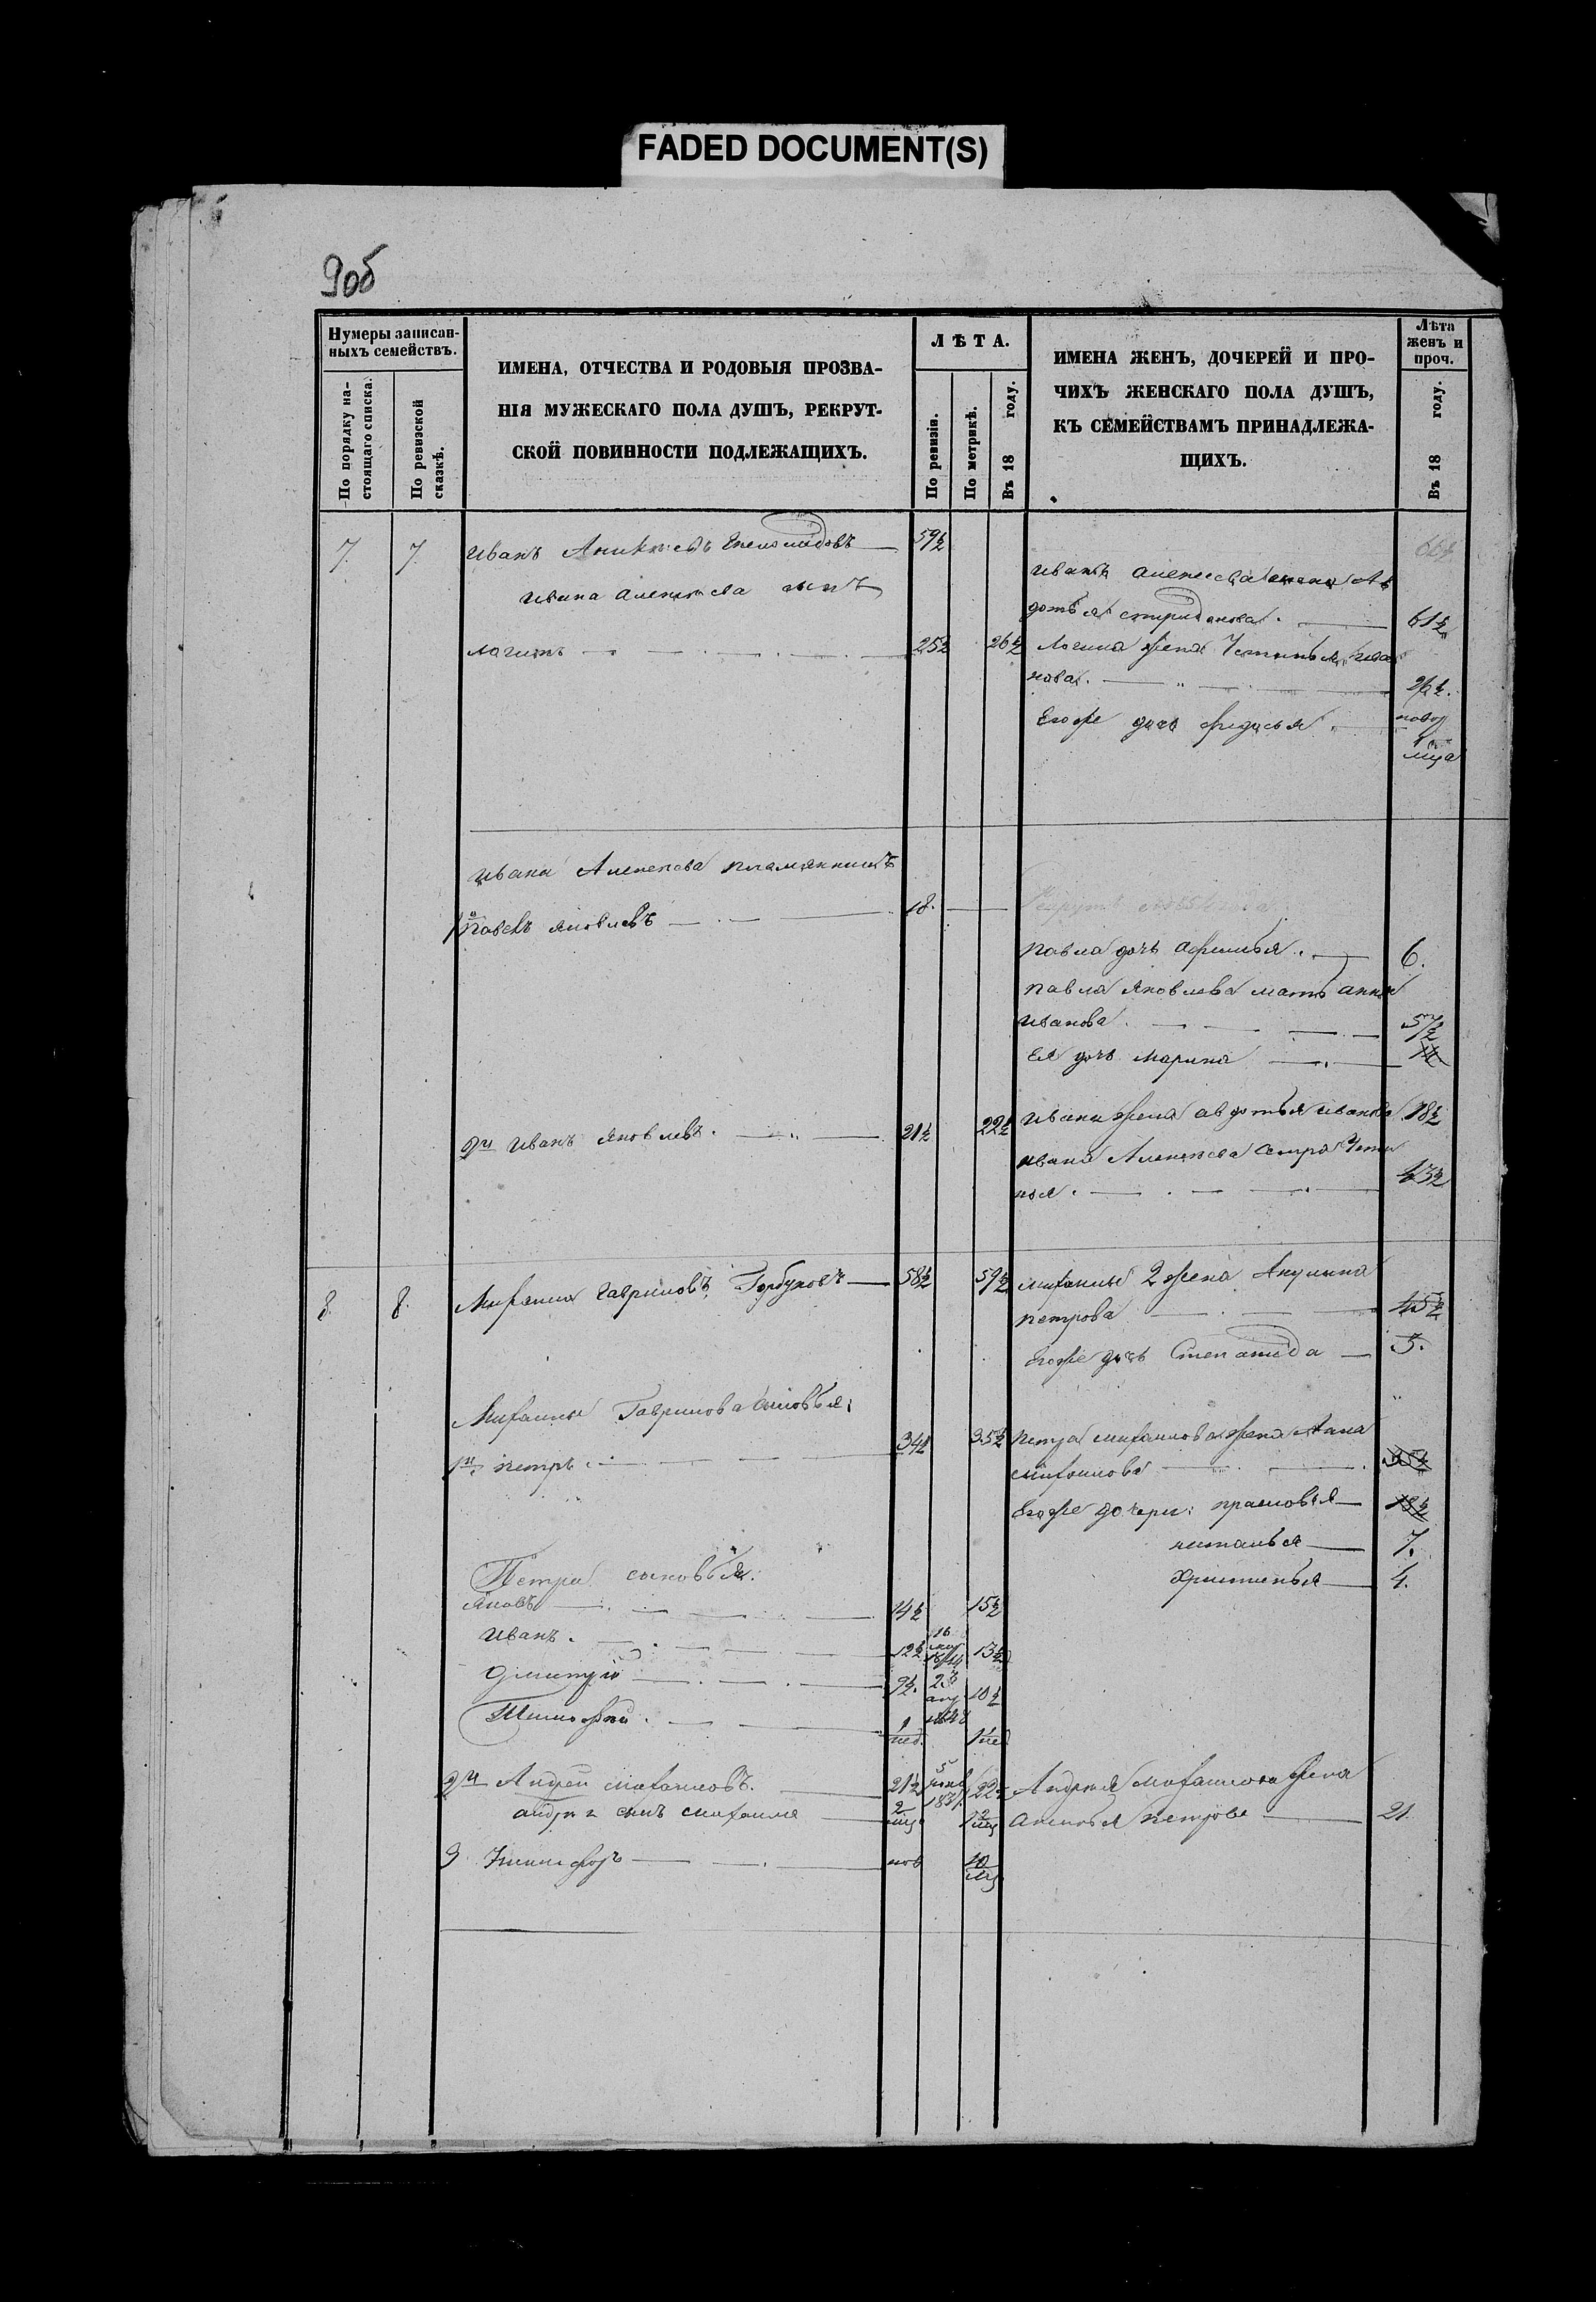 FADED DOCUMENT(S)
9об
Нумеры записан-
ныхъ семействъ.
По порядку на-
стоящаго списка.
По ревизской
сказкѣ.
ИМЕНА, ОТЧЕСТВА И РОДОВЫЯ ПРОЗВА-
НІЯ МУЖЕСКАГО ПОЛА ДУШЪ, РЕКРУТ-
СКОЙ ПОВИННОСТИ ПОДЛЕЖАЩИХЪ.
ЛѢТА.
По ревизіи.
По метрикѣ.
Въ 18 году.
ИМЕНА ЖЕНЪ, ДОЧЕРЕЙ И ПРО-
ЧИХЪ ЖЕНСКАГО ПОЛА ДУШЪ,
КЪ СЕМЕЙСТВАМЪ ПРИНАДЛЕЖА-
ЩИХЪ.
Лѣта
женъ и
проч.
Въ 18 году.
7. 7. Иванъ 59½
Ивана Алексѣева сынъ
Ивана Алексѣева жена Ав
дотья Спиридонова 61½
Логинъ 25½ 26½ Логина жена Устинья Ива
нова 26½
Егоже дочь Федосья
мца
Ивана Алексѣева племянникъ
1й Павелъ Яковлевъ 18.
Павла дочь Афимья 6.
Павла Яковлева мать Анна
Иванова 57½
Ея дочь Марина
2й Иванъ Яковлевъ 21½ 22½ Ивана жена Авдотья Иванова 18½
Ивана Алексѣева сестра Усти
нья 43½
8. 8. Михаила Гавриловъ Горбуновъ 58½ 59½ Михаилы 2 жена Акулина
Петрова 45½
Егоже дочь Степанида 5.
Михаилы Гаврилова сыновья:
1й Петръ 34½ 35½ Петра Михаилова жена Анна
Михаилова
Егоже дочери: Прасковья 18½
Наталья 7.
Христинья 4.
Петра сыновья:
Яковъ 14½ 15½
Иванъ 12½ 16 13½
Дмитрій 9½ 23 10½
Тимофей 1 нед. 1 нед.
2й Андрей Михаиловъ 21½ 5 22½ Андрея Михаилова жена
Андрея сынъ Михаила 2 мц Аксинья Петрова 21.
3 Никифоръ нов 10 мц